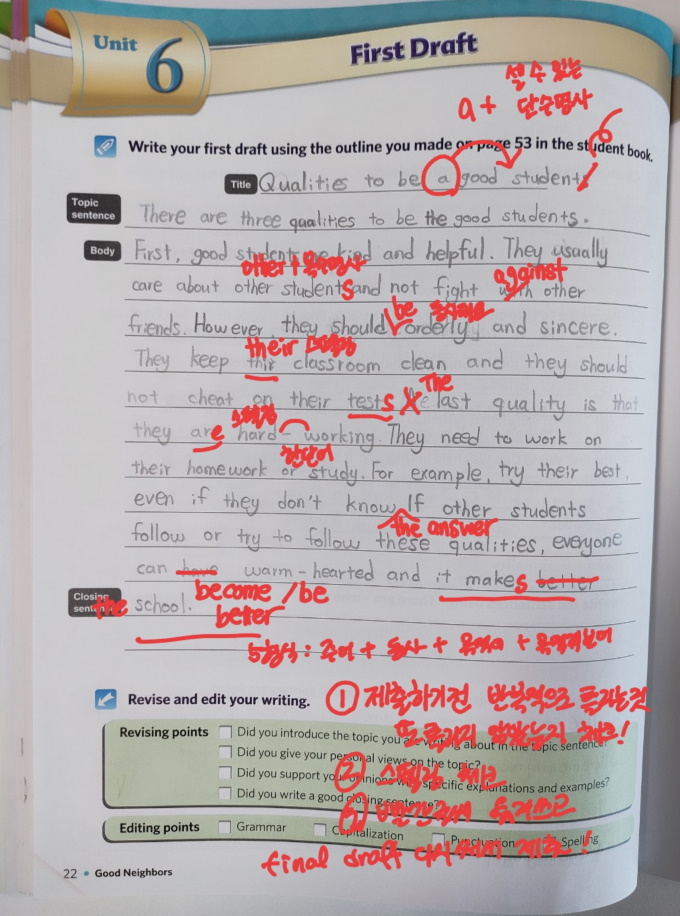 Unit 6
First Draft
셀 수 있는
a + 단수명사
Write your first draft using the outline you made on page 53 in the student book.
Title Qualities to be a good student
Topic sentence There are three qualities to be the good students.
Body First, good students be kind and helpful. They usually
other + 복수명사 against
care about other students and not fight with other
be
friends. However, they should orderly and sincere.
their 스펠링
They keep thir classroom clean and they should
The
not cheat on their tests. The last quality is that
스펠링
they are hard-working. They need to work on
한단어
their homework or study. For example, try their best,
even if they don't know. If other students
the answer
follow or try to follow these qualities, everyone
can have warm-hearted and it makes better
become / be
Closing sentence the school.
better
5형식 : 주어 + 동사 + 목적어 + 목적격보어
Revise and edit your writing.
① 제출하기전 반복적으로 틀리는것
또 틀리지 않았는지 체크!
Revising points
Did you introduce the topic you are writing about in the topic sentence?
Did you give your personal views on the topic?
② 스펠링 체크
Did you support your opinions with specific explanations and examples?
Did you write a good closing sentence?
Editing points Grammar Capitalization Punctuation Spelling
final draft 다시 써서 제출!
22 • Good Neighbors